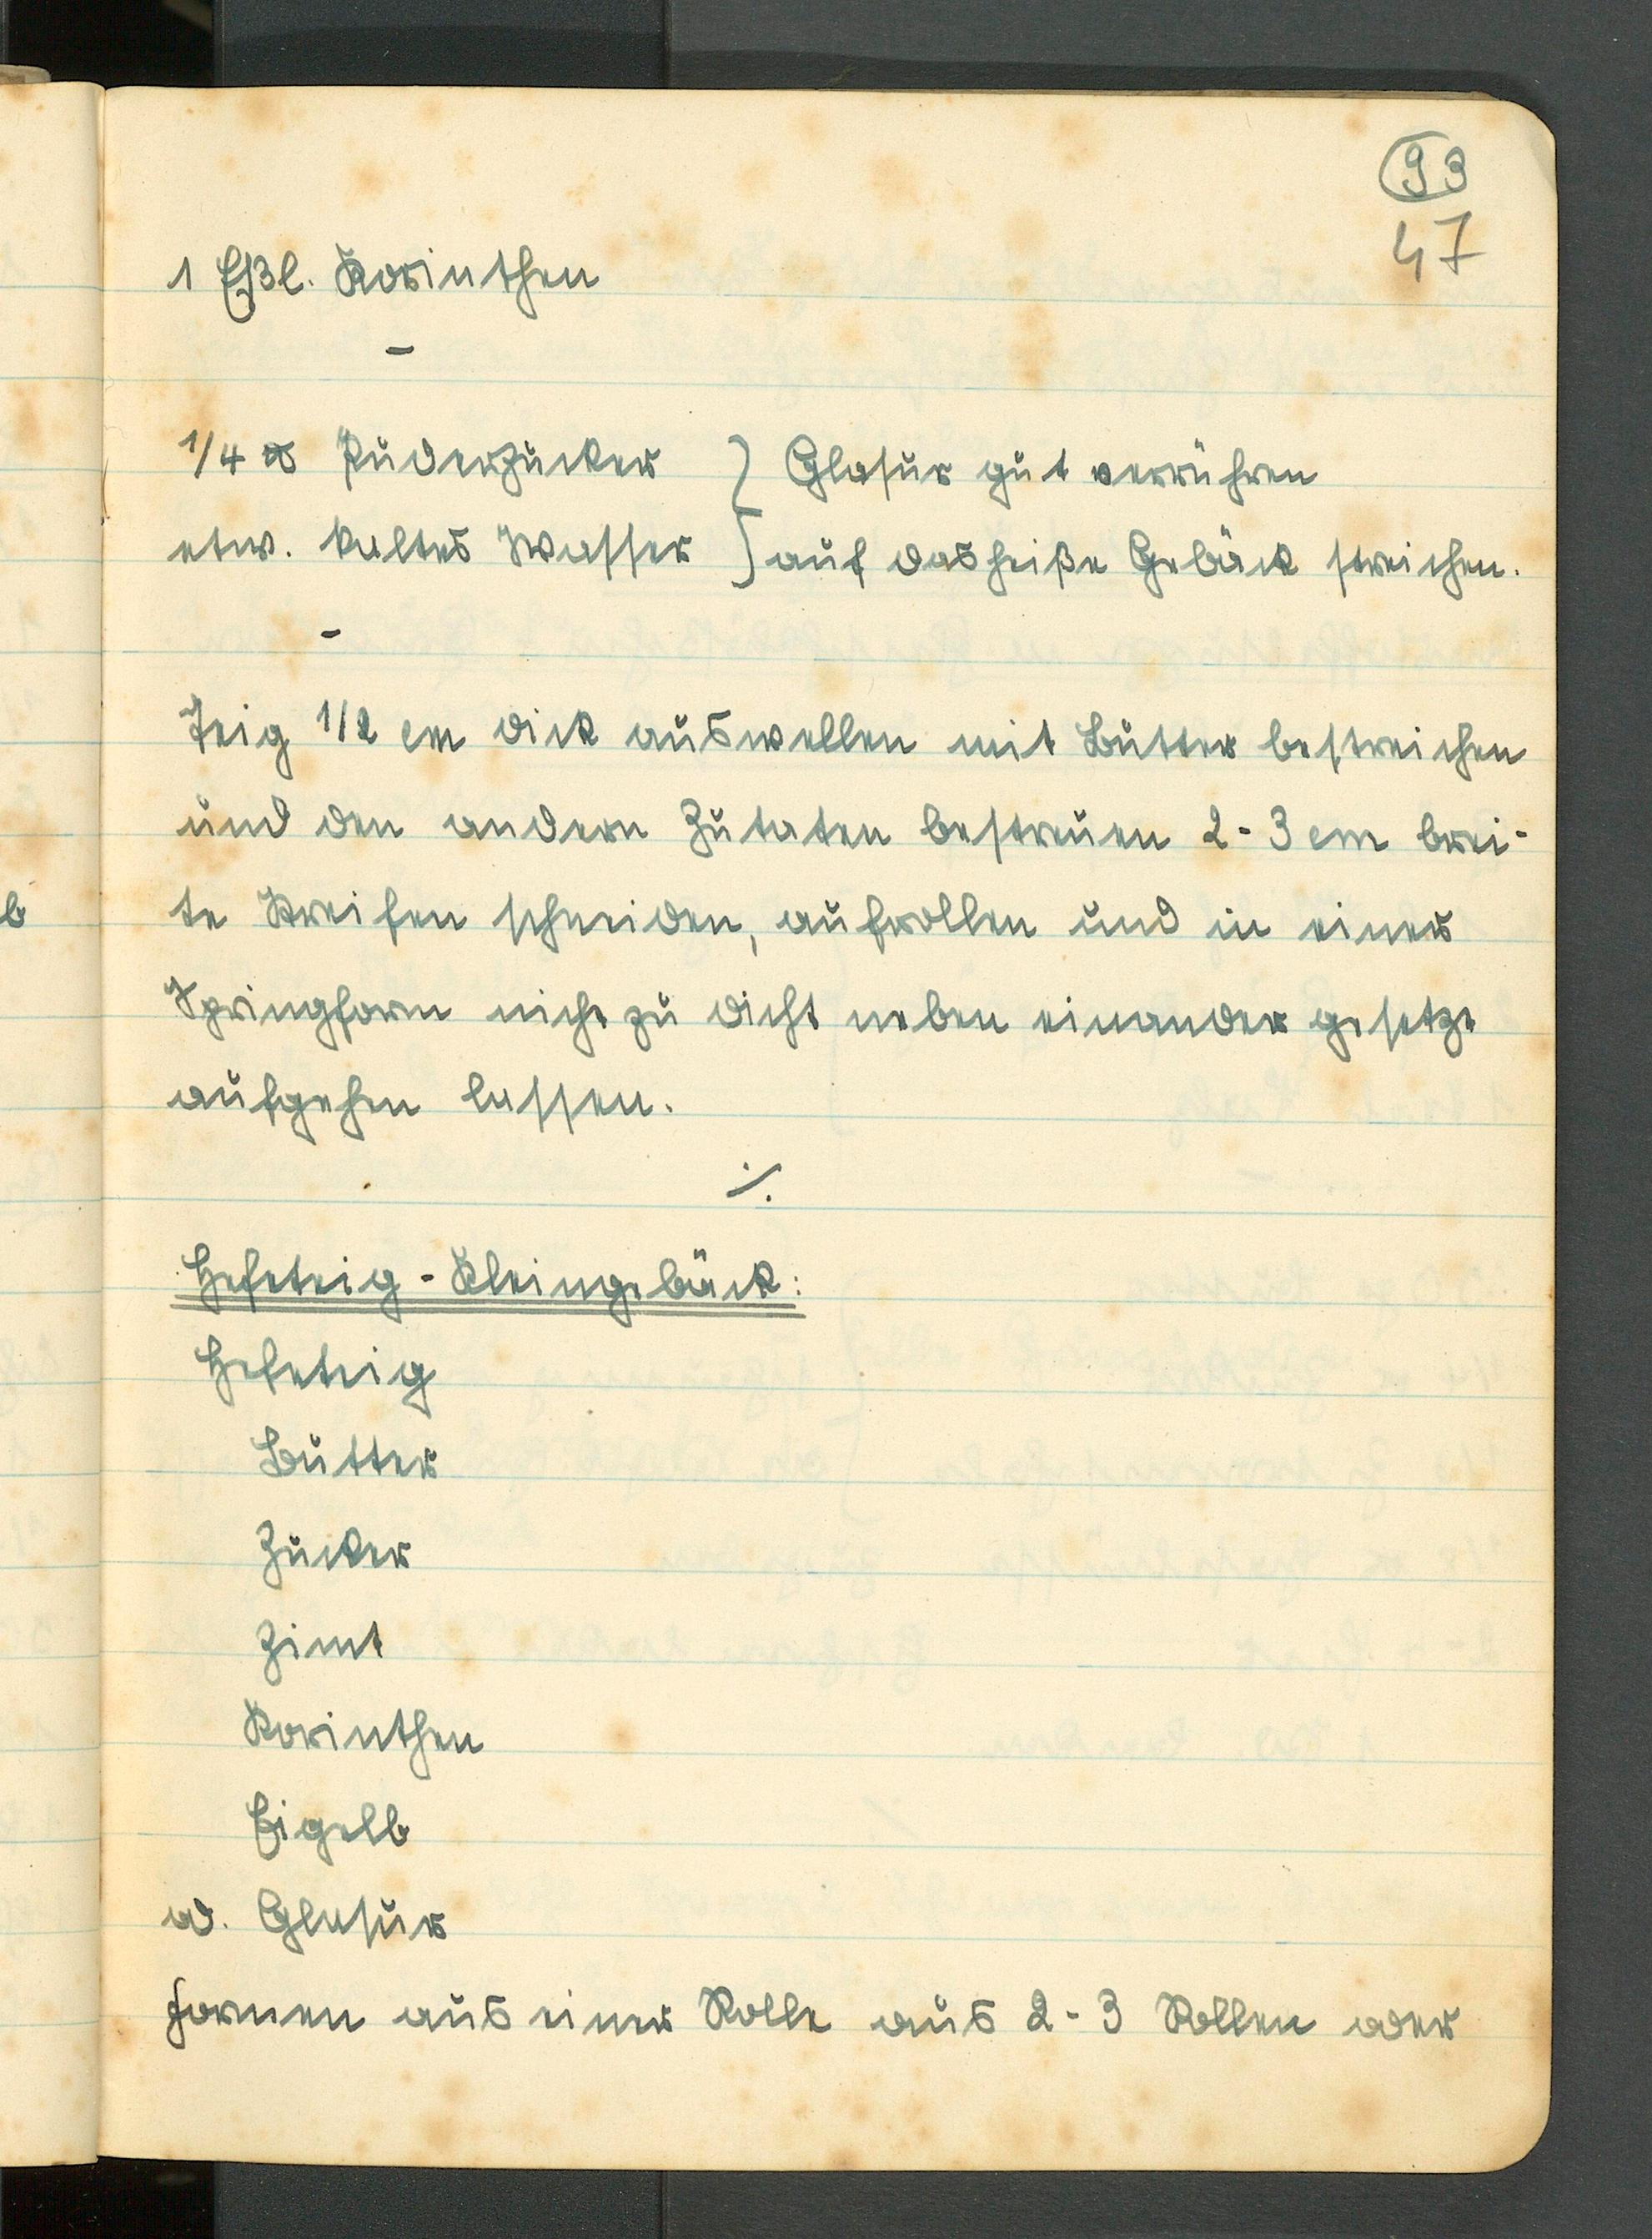 93
47
1 Eßl. Korinthen
-
1/4 ℔ Puderzucker } Glasur gut verrühren
etw. kaltes Wasser } auf das heiße Gebäck streichen.
-
Teig 1/2 cm dick auswellen mit Butter bestreichen
und den andern Zutaten bestreuen 2-3 cm brei-
te Streifen schneiden, aufrollen und in einer
Springform nicht zu dicht neben einander gesetzt
aufgehen lassen.
./.
Hefeteig-Kleingebäck:
Hefeteig
Butter
Zucker
Zimt
Korinthen
Eigelb
od. Glasur
formen aus einer Rolle aus 2-3 Rollen oder